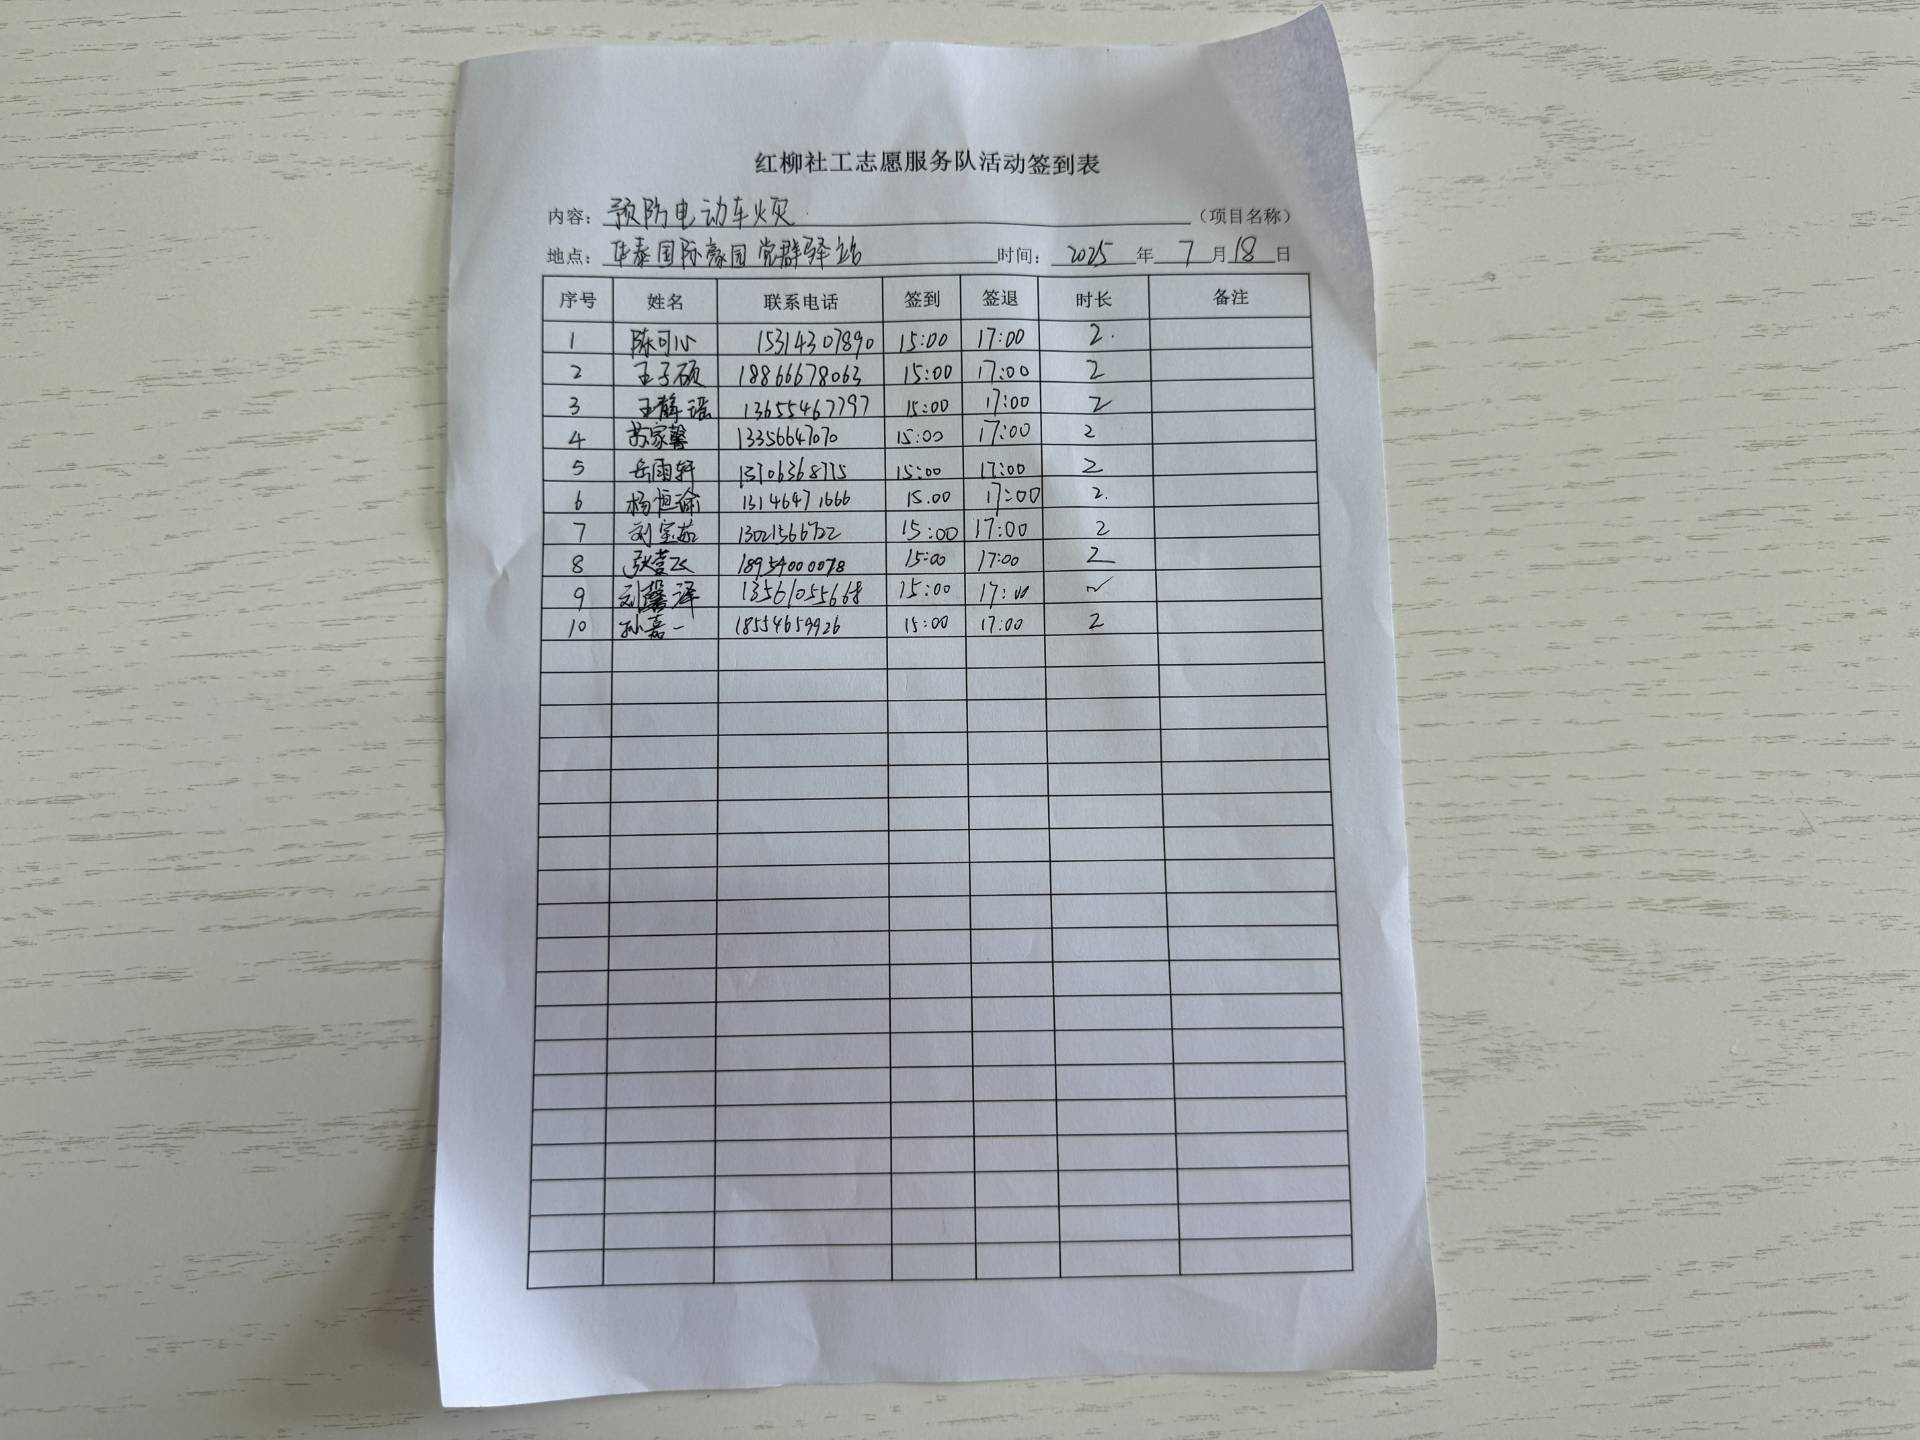 红柳社工志愿服务队活动签到表
内容：预防电动车火灾（项目名称）
地点：华泰国际豪园党群驿站 时间：2025年7月18日
序号 姓名 联系电话 签到 签退 时长 备注
1 陈可心 15314307890 15:00 17:00 2.
2 王子硕 18866678063 15:00 17:00 2
3 王静瑶 13655467797 15:00 17:00 2
4 苏家馨 13356647070 15:00 17:00 2
5 岳雨轩 13706368775 15:00 17:00 2
6 杨恒瑜 13146471666 15.00 17:00 2.
7 刘宝茹 13021566722 15:00 17:00 2
8 张喜飞 18954000078 15:00 17:00 2
9 刘馨泽 13561055668 15:00 17:00 2
10 孙嘉一 18554659926 15:00 17:00 2